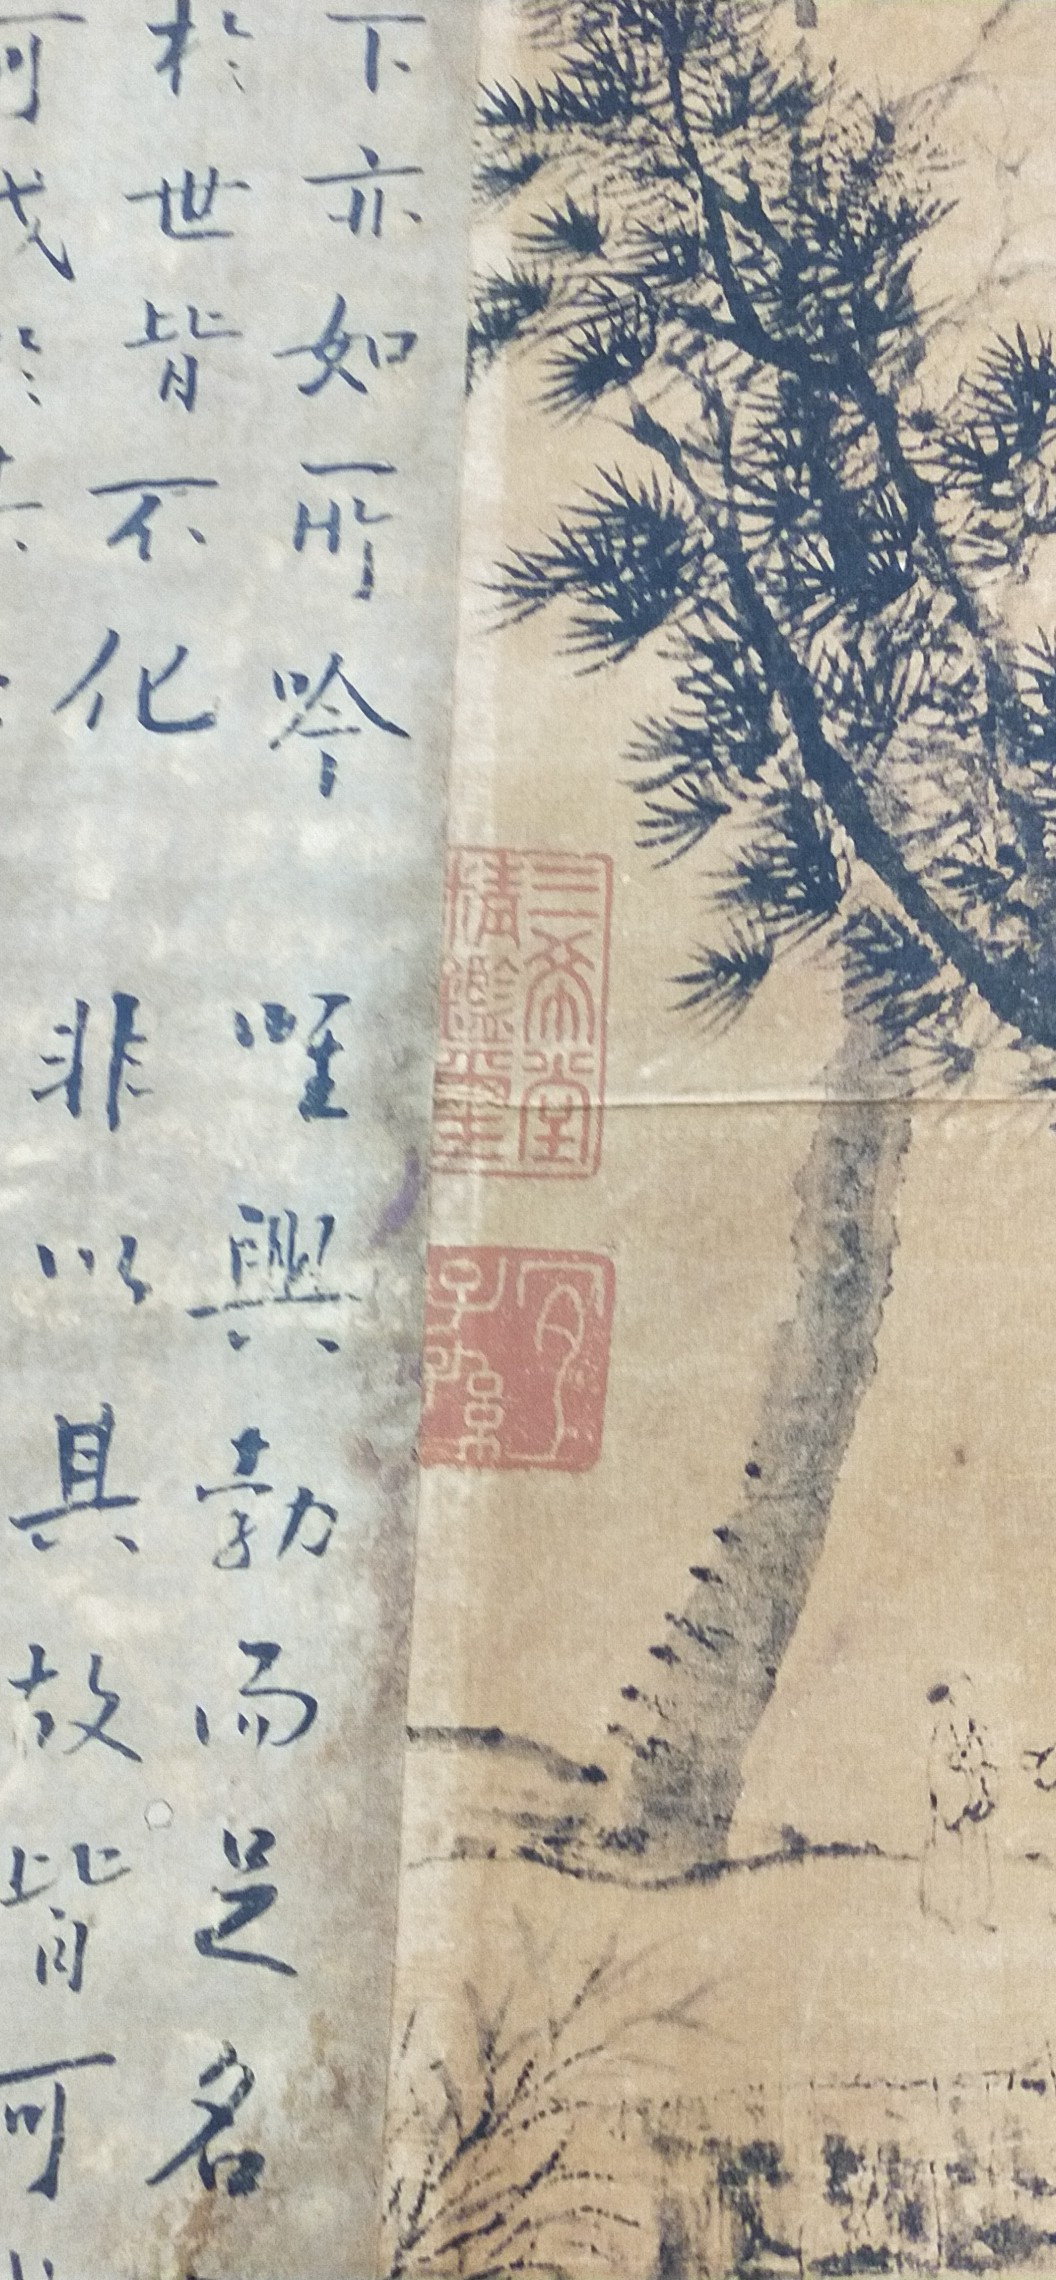 三希堂
精鑑璽
宜
子孫
下亦如所吟唯興勃而足名
於世皆不化非以其故皆可
可